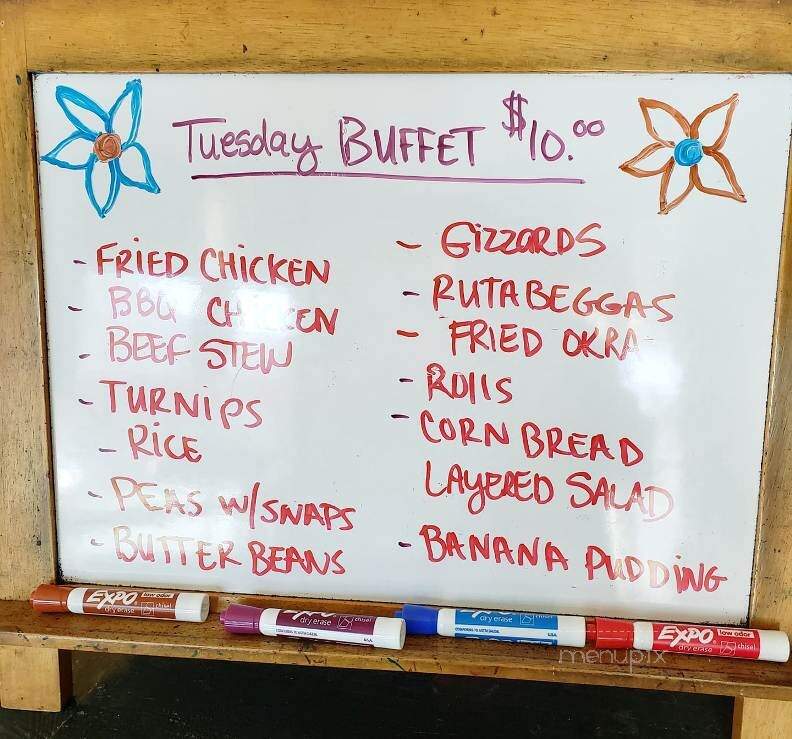 Tuesday BUFFET $10.00
- FRIED CHICKEN
- BBQ CHICKEN
- BEEF STEW
- TURNIPS
- RICE
- PEAS W/SNAPS
- BUTTER BEANS
- GIZZARDS
- RUTABEGGAS
- FRIED OKRA
- ROllS
- CORN BREAD
LAYERED SALAD
- BANANA PUDDING
EXPO low odor
dry erase chisel
dry erase chisel
USA
dry erase chisel
USA
EXPO low odor
dry erase chisel
menupix